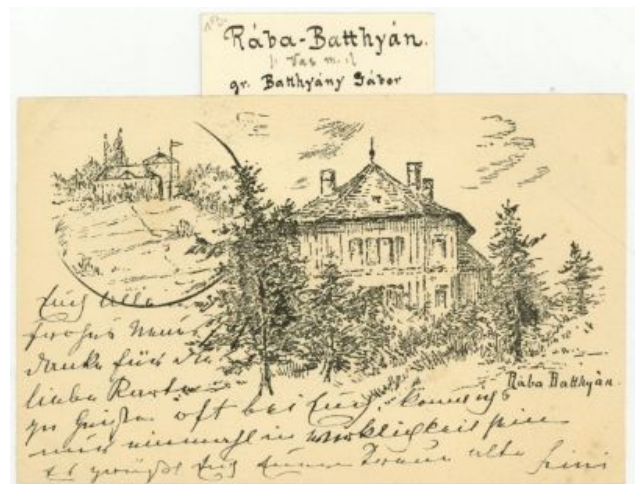 Rába-Batthyán.
(Vas m.)
gr. Batthyány Gábor
Rába Batthyán.
Euch Alle
frohes Neues
danke für die
liebe Karte
im Geiste oft bei Euch, könnt ichs
nur einmahl in Wirkligkeit sein
Es grüßt Euch Eure alte